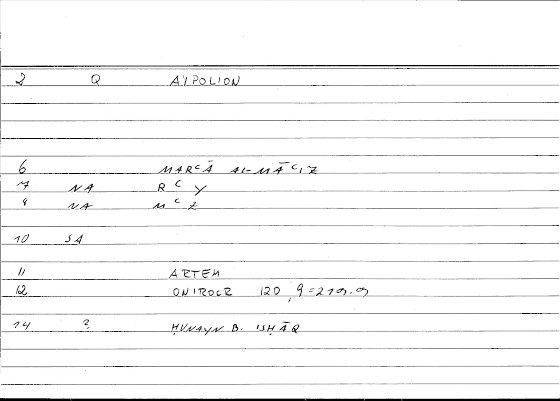 2 Q AYPOLION
6 MARᶜĀ AL-MĀᶜIZ
7 NA RᶜY
8 NA MᶜZ
10 SA
11 ARTEM
12 ONIROCR 120,9=219.9
14 ? ḤUNAYN B. ISḤĀQ